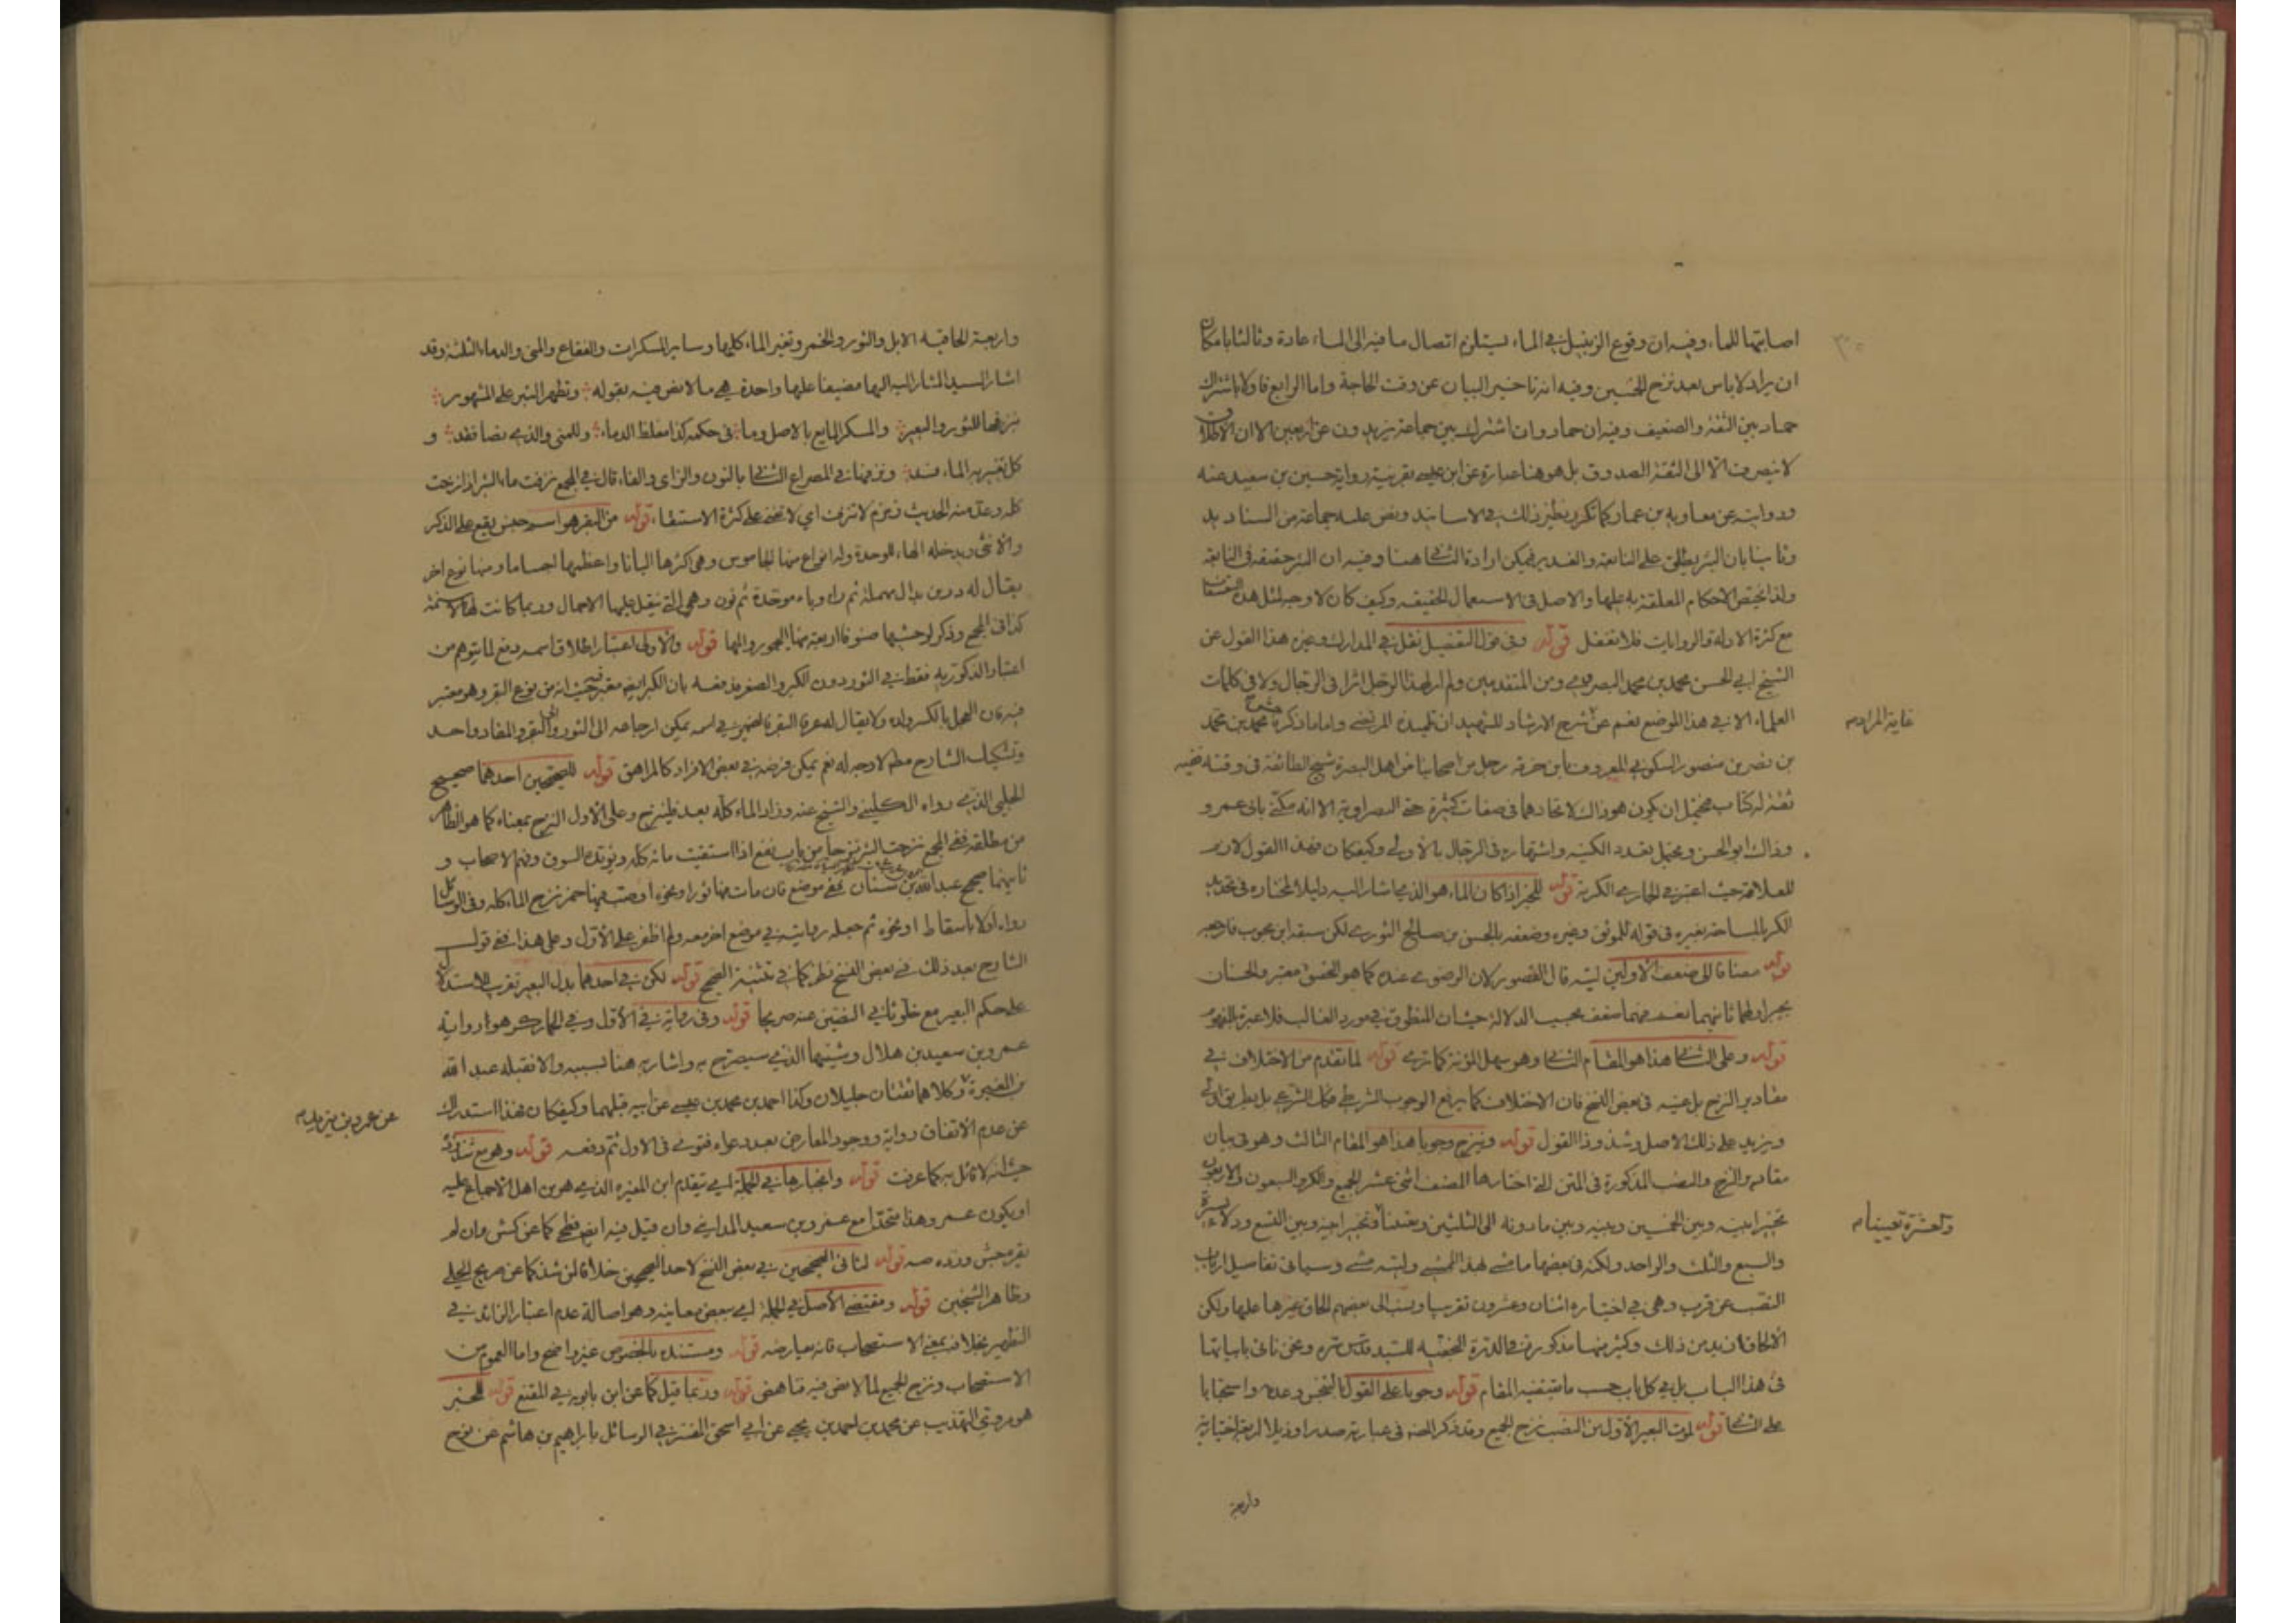 اصابتها للماء وفيه ان وقوع الزنبيل في الماء يستلزم اتصال ما فيه الى الماء عادة وثالثا بامكان
ان يراد لا باس بعد نزح الخمسين وفيه انه تاخير البيان عن وقت الحاجة واما الرابع فاولا باشتراك
حماد بين الثقة والضعيف وفيه ان حماد وان اشترك بين جماعة يزيدون عن اربعين الا ان الاطلاق
لا ينصرف الا الى الثقة الصدوق بل هو هنا عبارة عن ابن عيسى بقرينة رواية حسين بن سعيد عنه
وروايته عن معاوية بن عمار كما تكرر نظير ذلك في الاسانيد ونص عليه جماعة من السناديد
وثانيا بان البئر يطلق على النابعة والغدير فيمكن ارادة الثاني هنا وفيه ان البئر حقيقة في النابعة
ولذا يختص الاحكام المعلقة به عليها والاصل في الاستعمال الحقيقة وكيف كان لا وجه لمثل هذه
مع كثرة الادلة والروايات فلا تغفل قوله وفي قول التفصيل نقل في المدارك وغيره هذا القول عن
الشيخ ابي الحسن محمد بن محمد البصروي ومن المتقدمين ولم ار لهذا الرجل اثرا في الرجال ولا في كلمات
العلماء الا في هذا الموضع نعم عن شرح الارشاد للشهيد انه تلميذ المرتضى واما ما ذكره محمد بن محمد
غاية المرام
بن نصر بن منصور السكوني المعروف بابن خرقة رجل من اصحابنا من اهل البصرة شيخ الطائفة في وقته فقيه
ثقة له كتاب فيحتمل ان يكون هو ذاك لاتحادهما في صفات كثيرة حتى البصراوية الا انه مكنى بابي عمرو
وذاك ابو الحسن ويحتمل تعدد الكنية واشتهاره في الرجال بالاولى وكيفكان فهذا القول لازم
للعلامة حيث اعتبر في الجاري الكرية قوله للخبر اذا كان الماء هو الذي اشار اليه دليلا لمختاره في تحديد
الكر بالمساحة بغيره في قوله للموثق وغيره وضعفه بالحسن بن صالح الثوري لكن سبقه ابن محبوب فارجع
قوله مضافا الى ضعف الاولين ليته قال القصور لان الرضوي عنده كما هو الحق معتبر والحسنان
بجبر اولهما ثانيهما نعم فيهما ضعف بحسب الدلالة حيث ان المنطوق في مورد الغالب فلا عبرة بالمفهوم
قوله وعلى الثاني هذا هو المقام الثاني وهو سهل المؤنة كما ترى قوله لما تقدم من الاختلاف في
مقادير النزح بل عينه في بعض النسخ فان الاختلاف كما يرفع الوجوب الشرطي فكذا الشرعي بل بطريق اولى
ويزيد على ذلك الاصل وشذوذ القول قوله وينزح وجوبا هذا هو المقام الثالث وهو في بيان
مقادير النزح والنصب المذكورة في المتن التي اختارها المصنف اثنى عشر الجميع والكر والسبعون والاربعون
تخييرا بينه وبين الخمسين وبينه وبين ما دونه الى الثلثين وبعينا وتخييرا بينه وبين التسع ودلاء يسيرة
والعشرة تعيينا
والسبع والثلث والواحد ولكنه في بعضها ماشى لهذا الممشى وليته مشى وسياتى تفاصيل ارباب
النصب عن قرب وهي في اختياره اثنان وعشرون تقريبا وينسب الى بعضهم الحاق غيرها عليها ولكن
الالحاق ازيد من ذلك وكثير منها مذكورة في الدرة النجفية للسيد قدس سره ونحن ناتى بابياتها
في هذا الباب بل في كل باب حسب ما يقتضيه المقام قوله وجوبا على القول بالتنجس وعدمه واستحبابا
على الثاني قوله لموت البعير الاول من النصب نزح الجميع وقد ذكر المصنف في عبارته صدرا وذيلا اربعة اختيارية
واربعة
واربعة الحاقية الابل والثور والخمر وتغير الماء كليها وساير المسكرات والفقاع والمني والدماء الثلثة وقد
اشار السيد المشار اليه اليها مضيفا عليها واحدة هي ما لا نص فيه بقوله وتطهر البئر على المشهور
بنزفها للثور والبعير والمسكر المايع بالاصل وما في حكمه كذا مغلظ الدماء وللمني والذي نصا فقد و
كل تغير به الماء فسد ونزفها في المصراع الثاني بالنون والزاي والفاء قال في المجمع نزفت ماء البئر اذا نزحت
كله وعد منه الحديث زمزم لا تنزف اي لا تفنى على كثرة الاستقاء قوله من البقر هو اسم جنس يقع على الذكر
والانثى ويدخله الهاء للوحدة وله انواع منها الجاموس وهي اكثرها البانا واعظمها اجساما ومنها نوع اخر
يقال له دربن بدال مهملة ثم راء وباء موحدة ثم نون وهي التي ينقل عليها الاحمال وربما كانت لها اسنمة
كذا في المجمع وذكر لوحشيها صنوفا اربعة منها اليحمور والمها قوله والاولى اعتبار اطلاق اسمه دفع لما يتوهم من
اعتبار الذكورية فقط في الثور دون الكبر والصغر فدفعه بان الكبر ايضا معتبر حيث انه من نوع البقر وهو معتبر
فيه فان العجل بالكسر ولده ولا يقال له عرفا البقر فالضمير في اسمه يمكن ارجاعه الى الثور والبقر والمفاد واحد
وتشكيك الشارح مطلقا لا وجه له نعم يمكن فرضه في بعض الافراد كالمراهق قوله للصحيحين احدهما صحيح
الحلبي الذي رواه الكليني والشيخ عنه وزاد الماء كله بعد فلينزح وعلى الاول النزح بمعناه كما هو الظاهر
من مطلقه ففي المجمع نزحت البئر نزحا من باب نفع اذا استقيت ماءه كله ويؤيده السوق وفهم الاصحاب و
ثانيهما صحيح عبد الله بن سنان ففي موضع فان مات فيها ثور او نحوه او صب فيها خمر نزح الماء كله وفي الوسائل
رواه اولا باسقاط او نحوه ثم جعله رواية في موضع اخر معه ولم اظفر على الاول وعلى هذا ففي قول
الشارح بعد ذلك في بعض النسخ نظر كما في تثنية الصحيح قوله لكن في احدهما بدل البعير تقريب الاستدلال
على حكم البعير مع خلو ثاني النصين عنه صريحا قوله وفي رواية في الاول وفي المدارك هو رواية
عمرو بن سعيد بن هلال وشبهها الذي سيصرح به واشار به هنا لسببه والا فقبله عبد الله
بن المغيرة وكلاهما ثقتان جليلان وكذا احمد بن محمد بن عيسى عن ابيه قبلهما وكيفكان فهذا استدراك
عن عمرو بن يزيد
عن عدم الاتفاق رواية ووجود المعارض بعد دعواه فتوى في الاول ثم دفعه قوله وهو مع شذوذه
حيث انه لا قائل به كما عرفت قوله وانجبارها في الجملة اي بتقدم ابن المغيرة الذي هو من اهل الاجماع عليه
او يكون عمرو هذا متحدا مع عمرو بن سعيد المدايني وان قيل فيه ايضا فطحي كما عن كش وان لم
لنا في الصحيحين في بعض النسخ لاحد الصحيحين خلافا لمن شذ كما عن صريح الحلي
وظاهر الشيخين قوله ومقتضى الاصل في الجملة اي بعض معانيه وهو اصالة عدم اعتبار الزائد في
التطهير بخلاف بمعنى الاستصحاب فانه يعارضه قوله ومستنده بالخصوص غير واضح واما العموم من
الاستصحاب ونزح الجميع لما لا نص فيه فناهض قوله وربما قيل كما عن ابن بابويه في المقنع قوله للخبر
هو مروي التهذيب عن محمد بن احمد بن يحيى عن ابي اسحق المفسر في الوسائل بابراهيم بن هاشم عن نوح